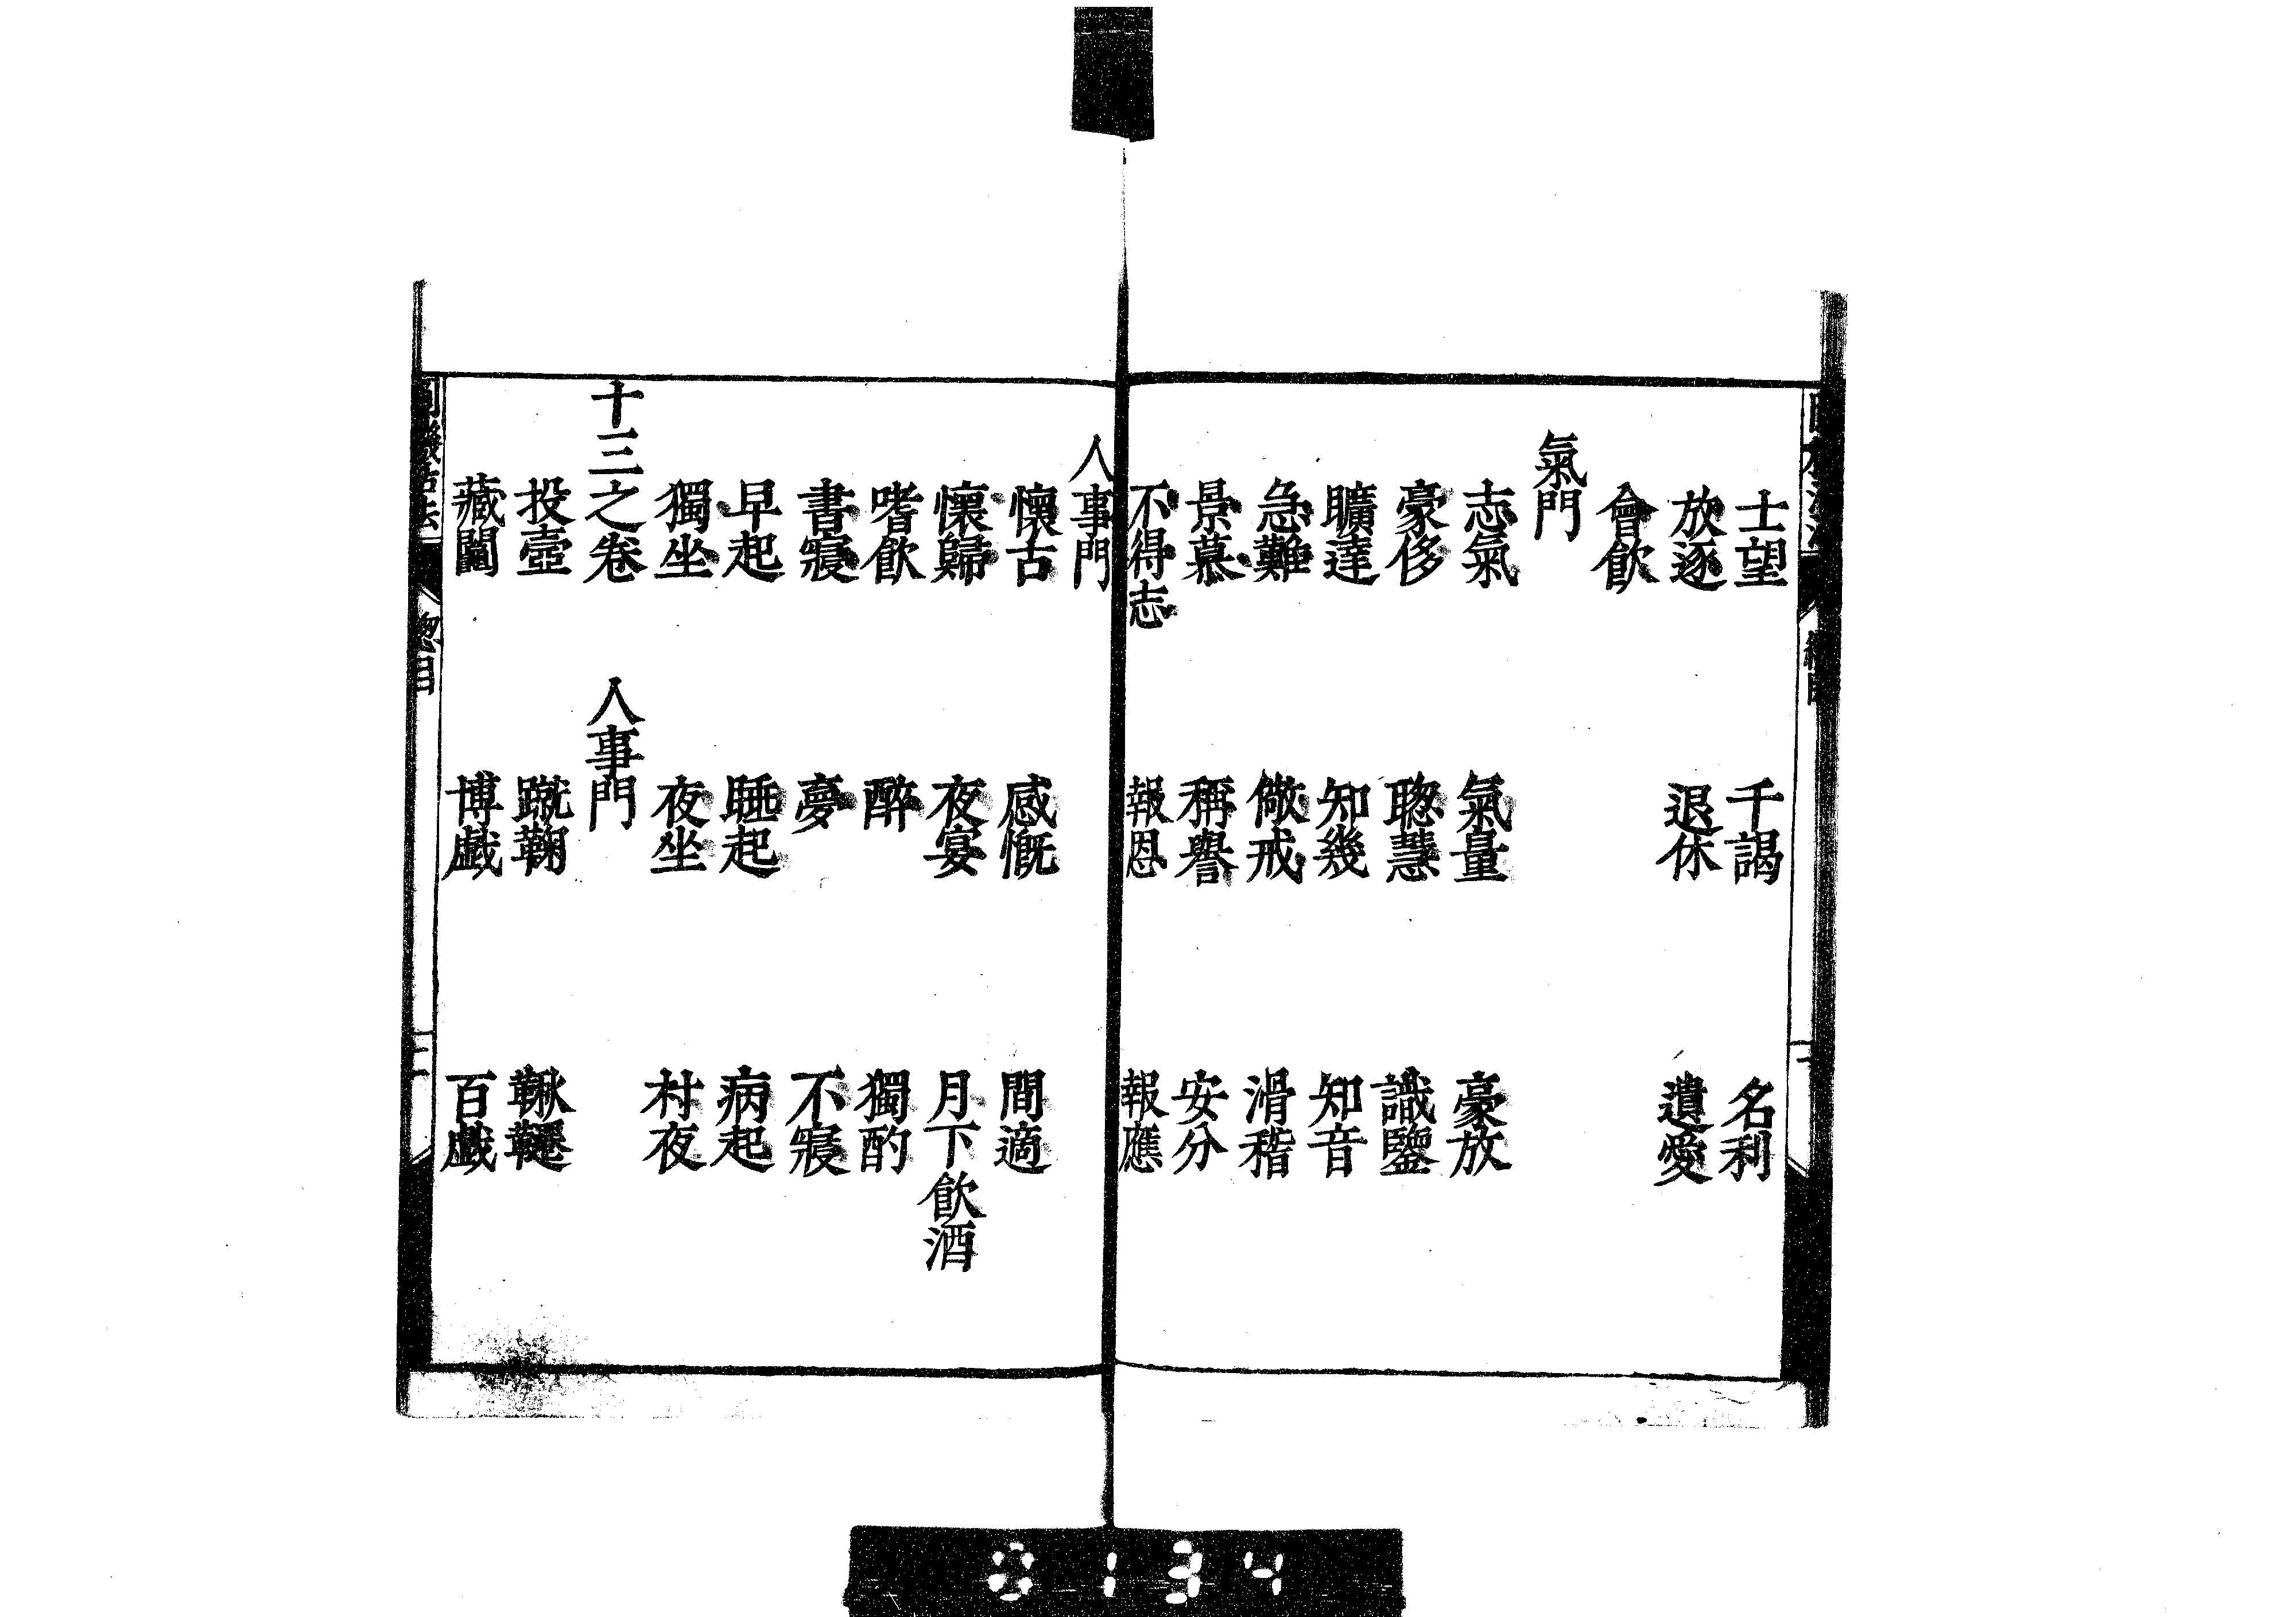 士望　千謁　名利
放逐　退休　遺愛
會飲
氣門
志氣　氣量　豪放
豪侈　聦慧　識鑒
曠達　知幾　知音
急難　儆戒　滑稽
景慕　稱譽　安分
不得志　報恩　報應
人事門
懷古　感慨　間適
懷歸　夜宴　月下飲酒
嗜飲　醉　獨酌
書寢　夢　不寢
早起　睡起　病起
獨坐　夜坐　村夜
十三之卷　人事門
投壺　蹴鞠　鞦韆
藏鬮　博戲　百戲
總目
0134